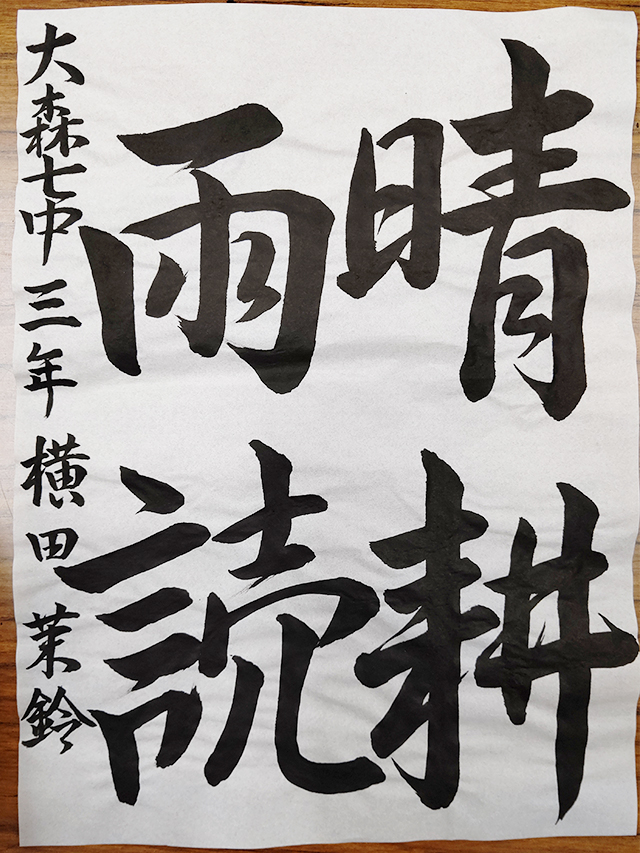 晴耕
雨読
大森七中三年横田茉鈴